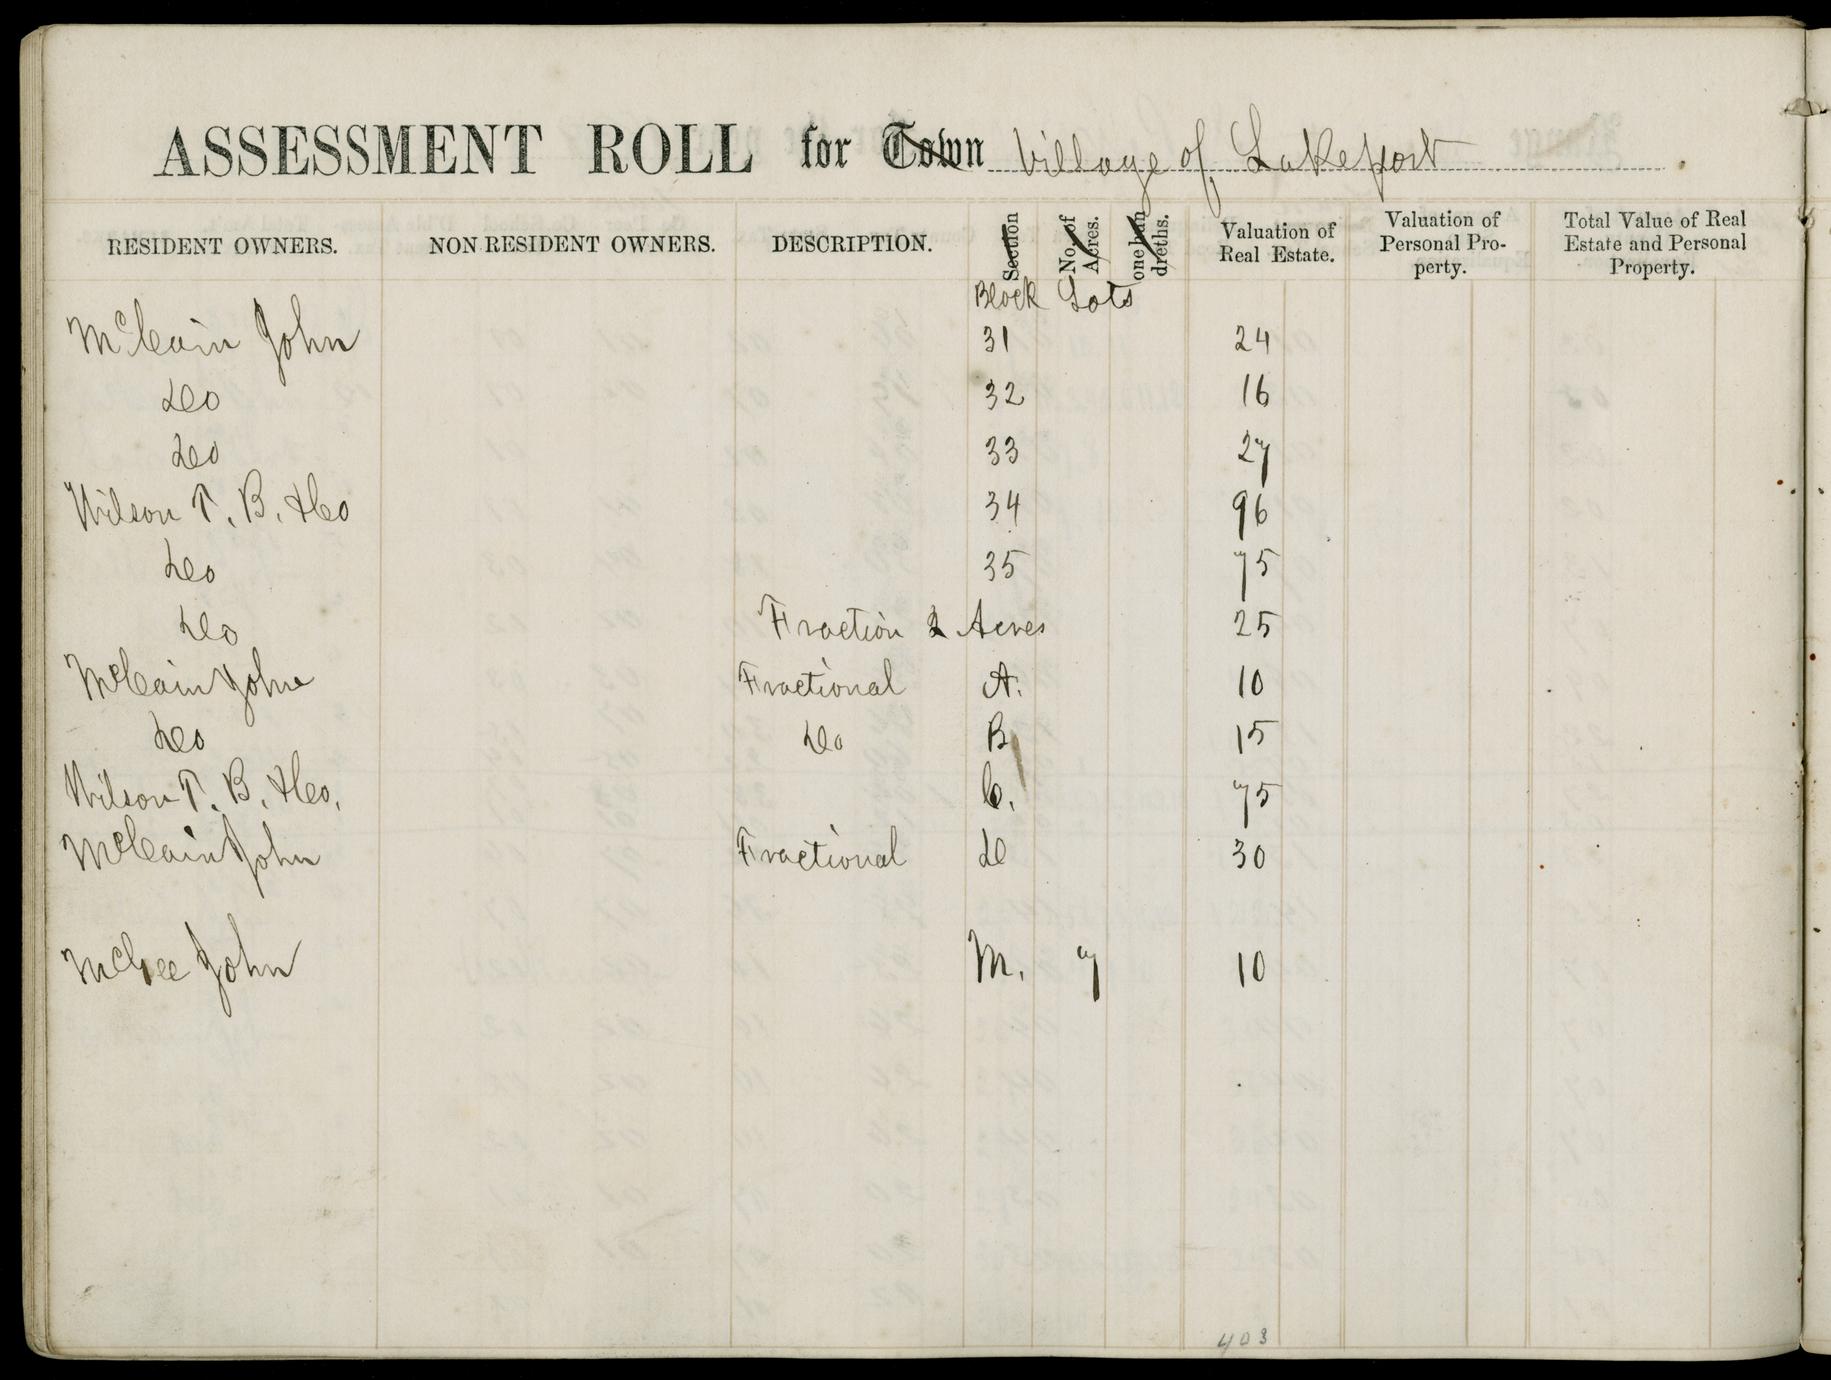 ASSESSMENT ROLL for Town Village of Lakeport
RESIDENT OWNERS. NON-RESIDENT OWNERS. DESCRIPTION. Section No. of Acres. one hundreths. Valuation of Real Estate. Valuation of Personal Property. Total Value of Real Estate and Personal Property.
Block Lots
McCain John 31 24
Do 32 16
Do 33 27
Wilson T. B. & Co 34 96
Do 35 75
Do Fraction 2 Acres 25
McCain John Fractional A. 10
Do Do B 15
Wilson T. B. & Co. C. 75
McCain John Fractional D 30
McGee John M. 7 10
403